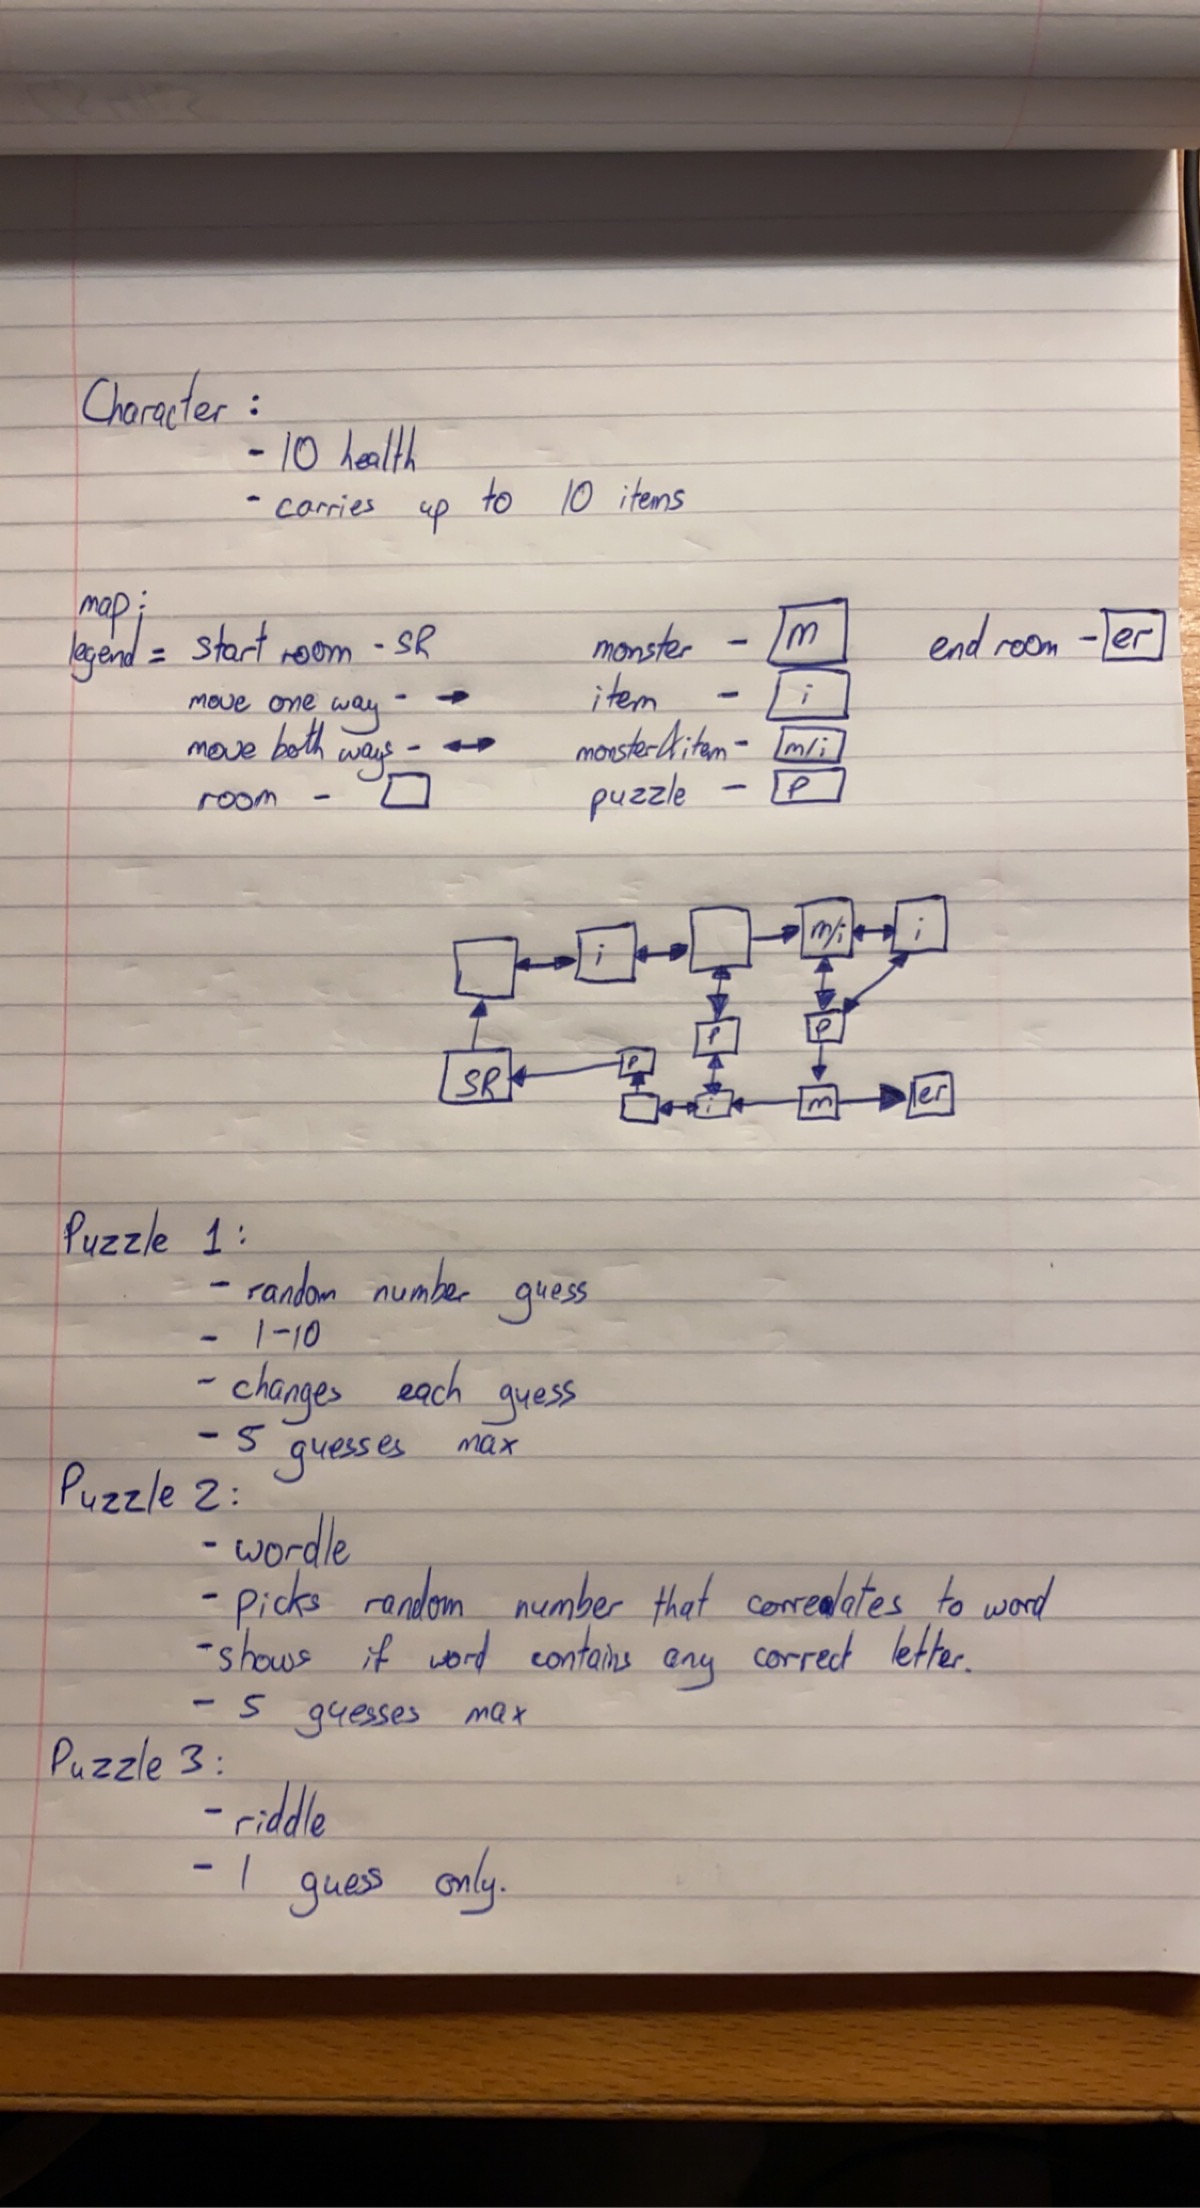 Character :
- 10 health
- carries up to 10 items
map :
legend = start room - SR monster - m end room - er
move one way - → item - i
move both ways - ↔ monster & item - m/i
room - puzzle - p
m/i i
i
P P
P
SR i m er
Puzzle 1 :
- random number guess
- 1-10
- changes each guess
- 5 guesses max
Puzzle 2 :
- wordle
- picks random number that correlates to word
- shows if word contains any correct letter.
- 5 guesses max
Puzzle 3 :
- riddle
- 1 guess only.